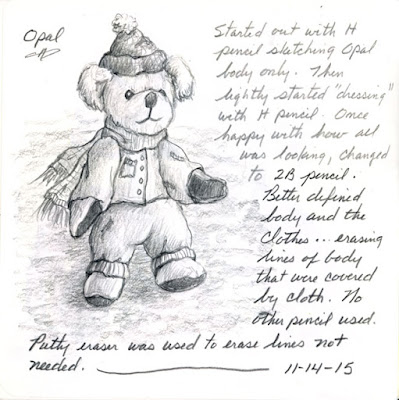 Opal
Started out with H
pencil sketching Opal
body only. Then
lightly started "dressing"
with H pencil. Once
happy with how all
was looking, changed
to 2B pencil.
Better defined
body and the
clothes... erasing
lines of body
that were covered
by cloth. No
other pencil used.
Putty eraser was used to erase lines not
needed. 11-14-15